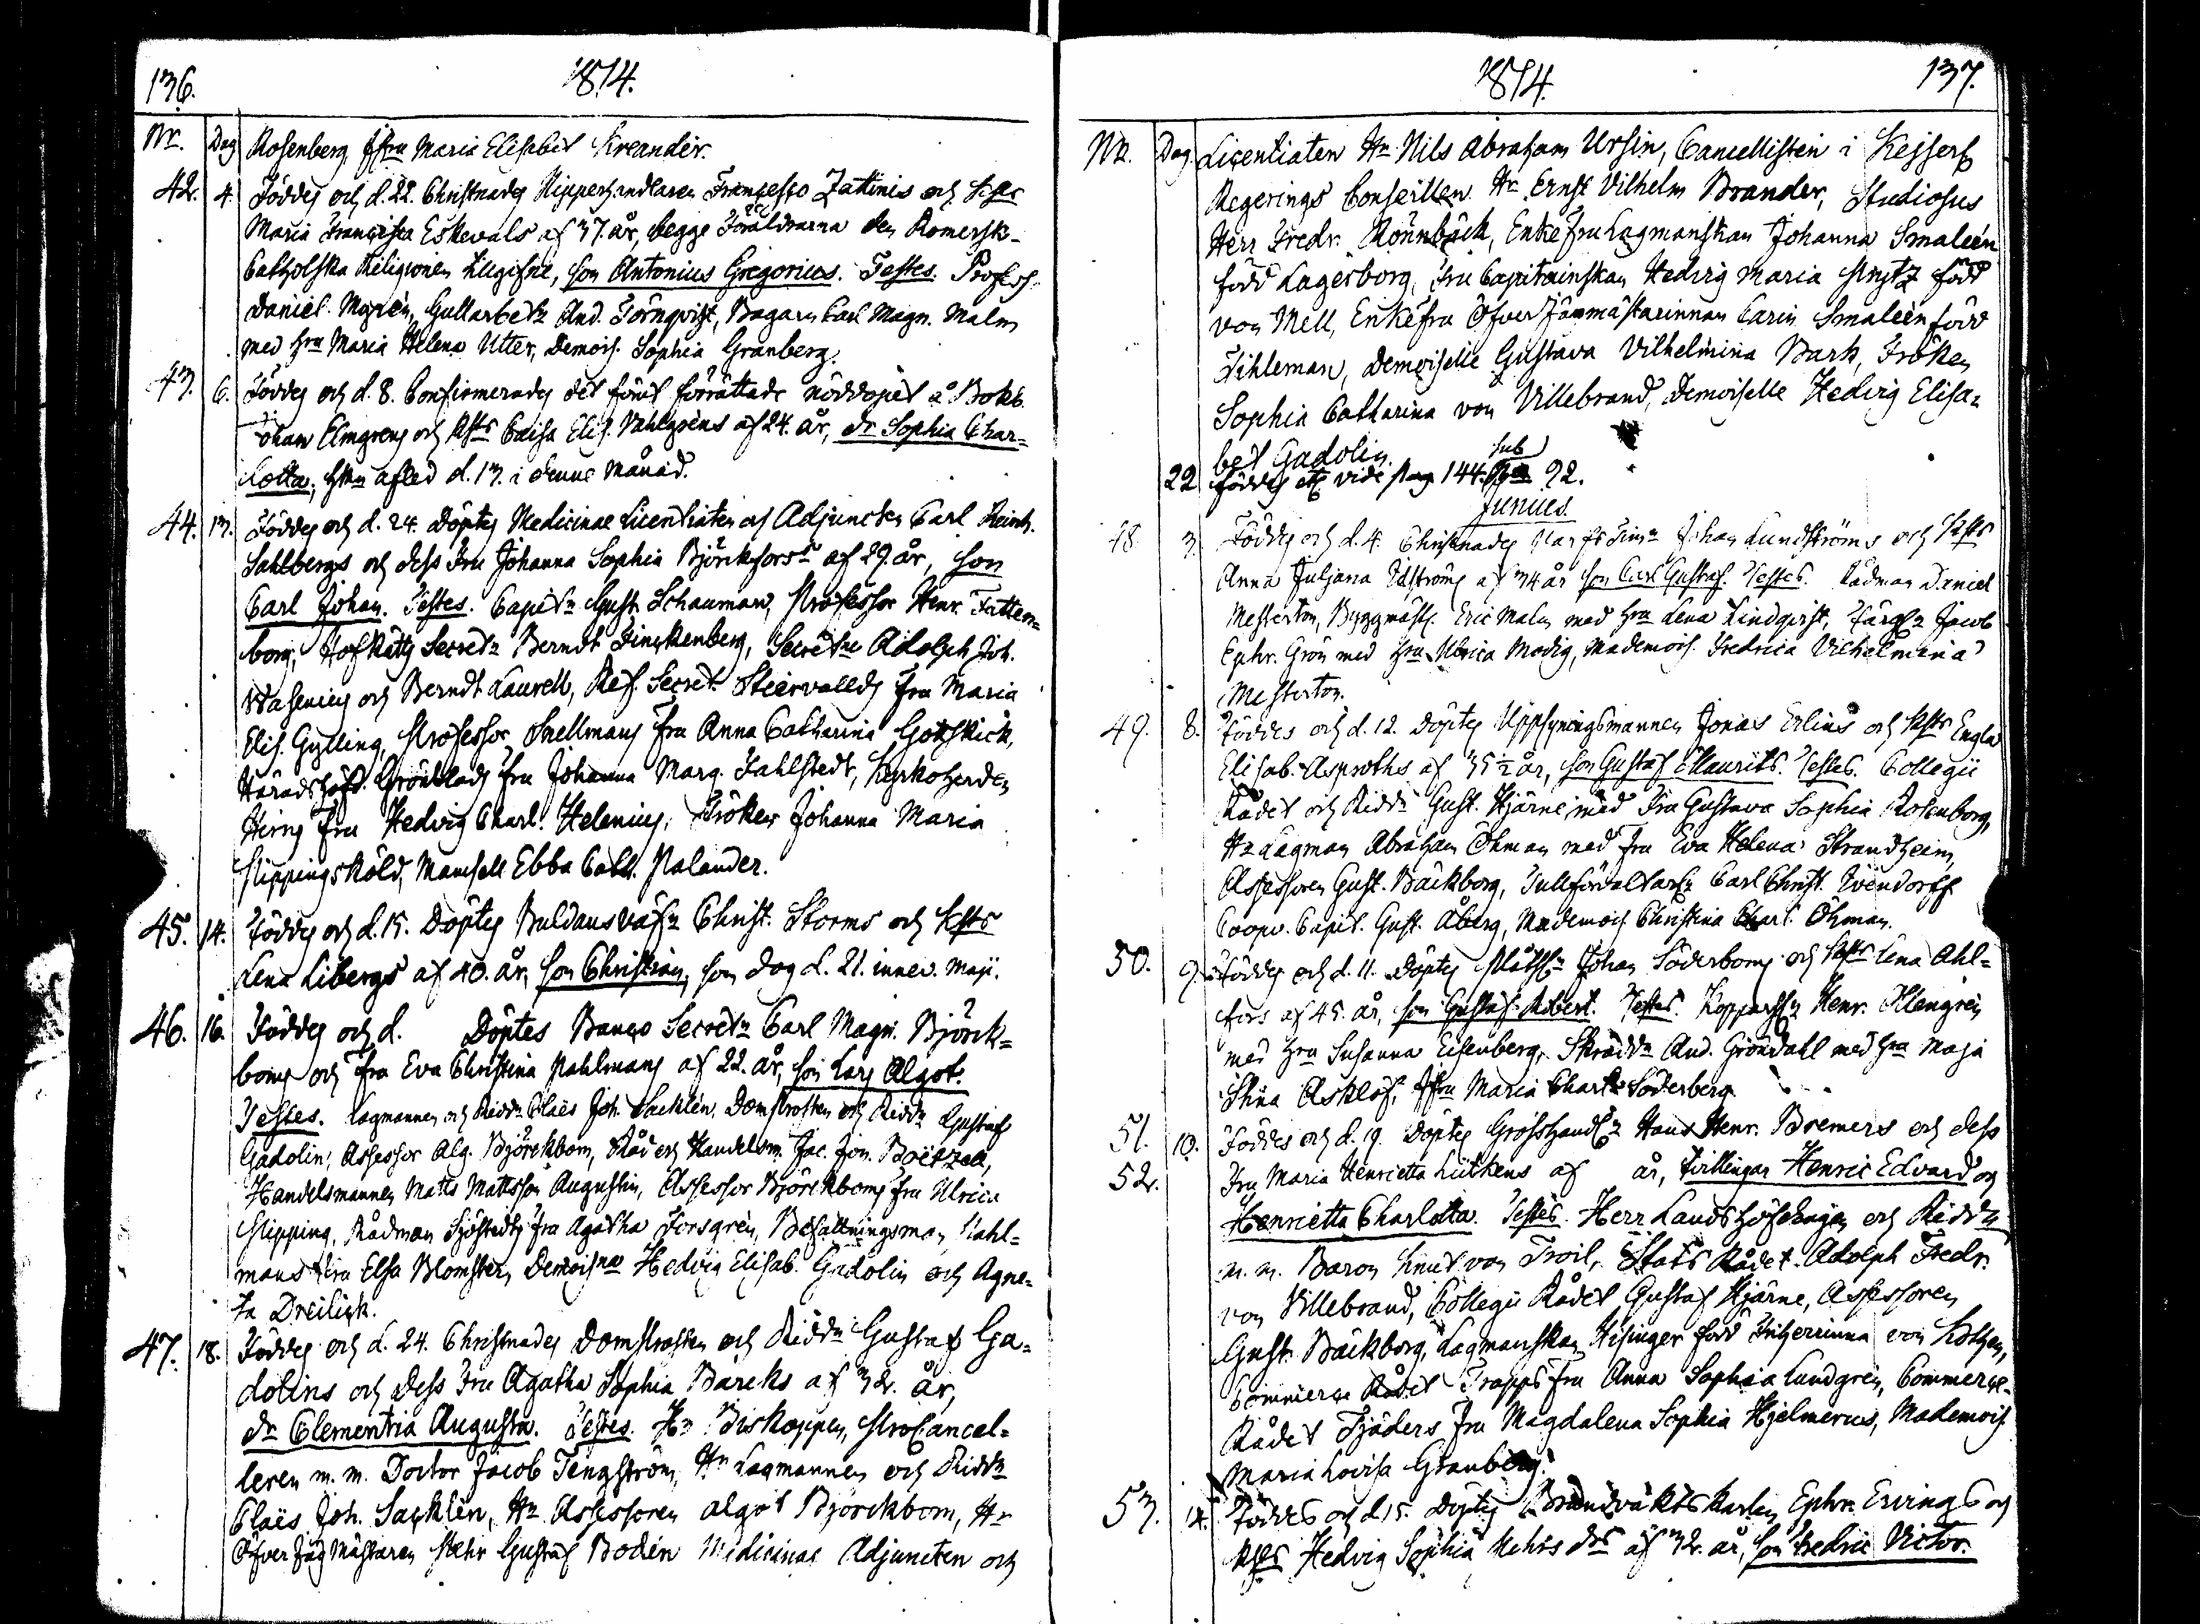 136.
1814.
Nr. Dag Rosenberg Jfru Maria Elisabet Kreander.
42. 4. Föddes och d. 22. Christnades Francesco Zattinis och hust
Maria Francisca Eskevals af 37. år, begge Föräldrarna den Romersk-
Catholska Religionen tillgifne, son Antonius Gregorius. Testes. Profess.
Daniel Myrén, Gullarbetn And. Törnqvist, Bagaren Carl Magn. Malm
med Hru Maria Helena Utter, Demois. Sophia Granberg.
43. 6. Föddes och d. 8. Confirmerades det förut förrättade nöddopet å Bokb.
Johan Elmgrens och hsts Caisa Elis. Vahlgrens af 24. år, dr Sophia Char-
lotta, som afled d. 13. i denne Månad.
44. 13. Föddes och d. 24. Döptes Medicinae Licentiaten och Adjuncten Carl Reinh.
Sahlbergs och dess Fru Johanna Sophia af 29. år, son
Carl Johan. Testes. Capitn Gust. Schauman, Professor Henr. Fatten-
borg, Hofrätts Secretn Berndt Finckenberg, Secretne Adolph Joh.
Wasenius och Berndt Laurell, Ref. Secret. fru Maria
Elis. Gylling, Professor Snellmans fru Anna Catharina Gottskick,
Häradshöfd. Grönblads fru Johanna Marg. Fahlstedt, Kyrkoherden
Hirns fru Hedvig Charl. Helenius, Fröken Johanna Maria
Slippingsköld, Mamsell Ebba Cath. Palander.
45. 14. Föddes och d. 15. Döptes Buldansväfn Christ. Storms och hsts
Lena Libergs af 40. år, son Christian, som dog d. 21. inned. Maji.
46. 16. Föddes och d. Döptes Banco Secretn Carl Magn. Björck-
boms och fru Eva Christina Pahlmans af 22. år, son Lars Algot.
Testes. Lagmannen och Riddn Claës Joh. Sacklén, Domprosten och Riddn Gustaf
Gadolin, Assessor Alg. Björckbom, Råd och Handelsm. Jac. Jon. Boëtzell,
Handelsmannen Matts Mattsson Augustin, Assessor Björckboms fru Ulrica
Slipping, Rådman Sjöstedts fru Agatha Forsgrén, Befallningsman Pahl-
mans fru Elsa Blomberg, Hedvig Elisab. Gadolin och Agne-
ta Dreilick.
47. 18. Föddes och d. 24. Christnades Domprosten och Riddn Gustaf Ga-
dolins och dess Fru Agatha Sophia Barcks af 32. år,
dr Clementia Augusta. Testes. Hr Biskoppen, Procancel-
leren m. m. Doctor Jacob Tengström, Hr Lagmannen och Riddn
Claës Joh. Sacklén, Hr Assessoren Algot Björckbom, Hr
Gustaf Bodén Medicinae Adjuncten och
1814.
137.
Nr. Dag. Licentiaten Hr Nils Abraham Ursin, Cancellisten i Kejserl
Regerings Conseillen Hr Ernst Vilhelm Brander, Studiosus
Herr Fredr. Rönnbäck, Enkefru Lagmanskan Johanna Smaleén
född Lagerborg, Fru Capitainskan Hedvig Maria född
von Mell, Enkefru Carin Smaleén född
Tihleman, Demoiselle Gustava Vilhelmina Bark, Fröken
Sophia Catharina von Villebrand, Demoiselle Hedvig Elisa-
bet Gadolin.
22 Föddes etc vide pag 144. sub 92.
Junius.
48. 3. Föddes och d. 4. Christnades Johan Lundströms och hsts
Anna Juliana Edströms af 34 år son Carl Gustaf. Testes. Rådman Daniel
Mesterton, Byggmäst. Eric Malm med Hru Lena Lindqvist, Jacob
Ephr. Grön med Hru Ulrica Modig, Mademois. Fredrica Vilhelmina
Mesterton.
49. 8. Föddes och d. 12. Döptes Uppsyningsmannen Jonas Erlins och hsts Engla
Elisab. Asproths af 35 1/2 år, son Gustaf Maurits. Testes. Collegii
Rådet och Riddn Gust. Hjärne med Fru Gustava Sophia Rosenborg,
Hr Lagman Abraham Öhman med fru Eva Helena Strandheim,
Assessoren Gust. Bäckborg, Tullförvaltarn Carl Christ.
Coopv. Capit. Gust. Åberg, Mademois Christina Charl. Öhman.
50. 9. Föddes och d. 11. Döptes Johan Söderboms och hsts Lena Ahl-
fors af 45. år, son Gustaf Robert. Testes. Kopparsln Henr. Klengrén
med Hru Susanna Eisenberg, Skräddn And. Gröndahl med Hru Maja
Stina Asklöf, Jfru Maria Charl. Söderberg.
51. 10. Föddes och d. 19. Döptes Grosshandln Hans Henr. Bremers och dess
52. Fru Maria Henrietta Lütkens af år, Tvillingar Henric Edvard og
Henrietta Charlotta. Testes. Herr Landshöfdingen och Riddn
m. m. Baron Knut von Troil, Stats Rådet Adolph Fredr.
von Villebrand, Collegii Rådet Gustaf Hjärne, Assessoren
Gust. Bäckborg, Lagmanskan Hisinger född Friherrinna von Kothen,
Commerce Rådet Trapps fru Anna Sophia Lundgrén, Commerce-
Rådet Tjäders fru Magdalena Sophia Hjelmerus, Mademois
Maria Lovisa Granberg.
53. 14. Föddes och d 15. Döptes Brandvaktskarlen Ephr. Ervings och
hsts Hedvig Sophia af 32. år, son Fredric Victor.